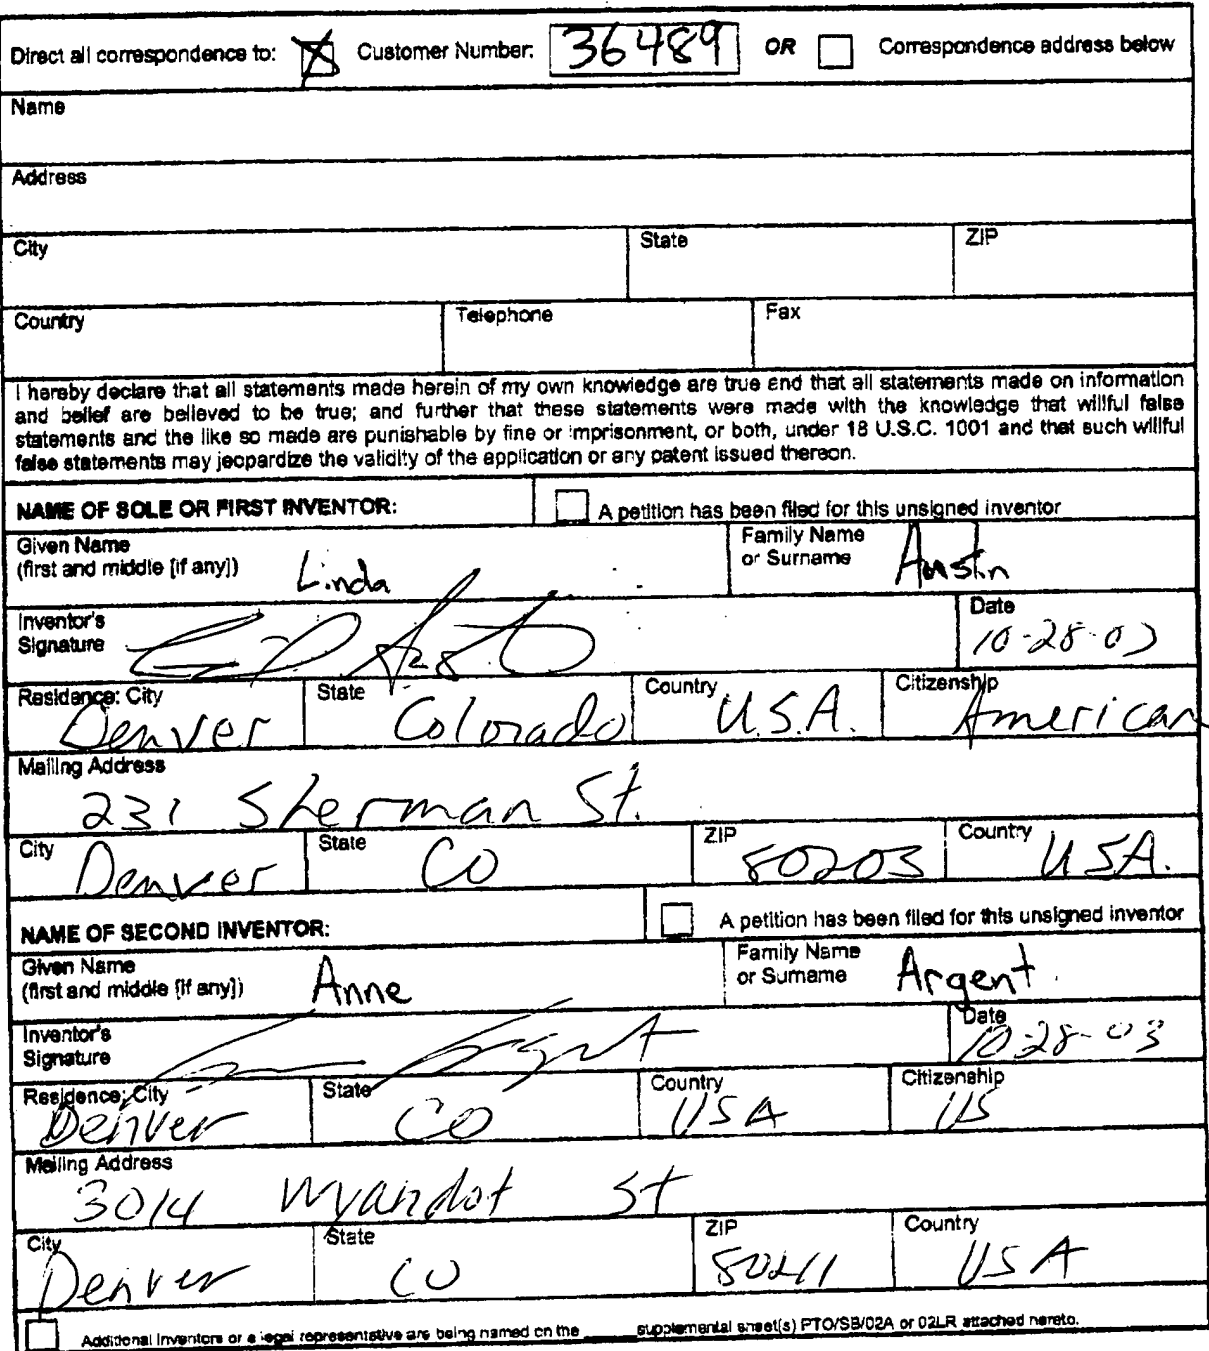 Direct all correspondence to: Customer Number: 36489 OR Correspondence address below
Name
Address
City State ZIP
Country Telephone Fax
I hereby declare that all statements made herein of my own knowledge are true and that all statements made on information
and belief are believed to be true; and further that these statements were made with the knowledge that willful false
statements and the like so made are punishable by fine or imprisonment, or both, under 18 U.S.C. 1001 and that such willful
false statements may jeopardize the validity of the application or any patent issued thereon.
NAME OF SOLE OR FIRST INVENTOR: A petition has been filed for this unsigned inventor
Given Name Family Name
(first and middle [if any]) Linda or Surname Austin
Inventor's Date
Signature 10-28-03
Residence: City State Country Citizenship
Denver Colorado U.S.A. American
Mailing Address
231 Sherman St.
City State ZIP Country
Denver CO 80203 USA.
NAME OF SECOND INVENTOR: A petition has been filed for this unsigned inventor
Given Name Family Name
(first and middle [if any]) Anne or Surname Argent
Inventor's Date
Signature 10-28-03
Residence: City State Country Citizenship
Denver CO USA US
Mailing Address
3014 Wyandot St
City State ZIP Country
Denver CO 80211 USA
Additional Inventors or a legal representative are being named on the supplemental sheet(s) PTO/SB/02A or 02LR attached hereto.